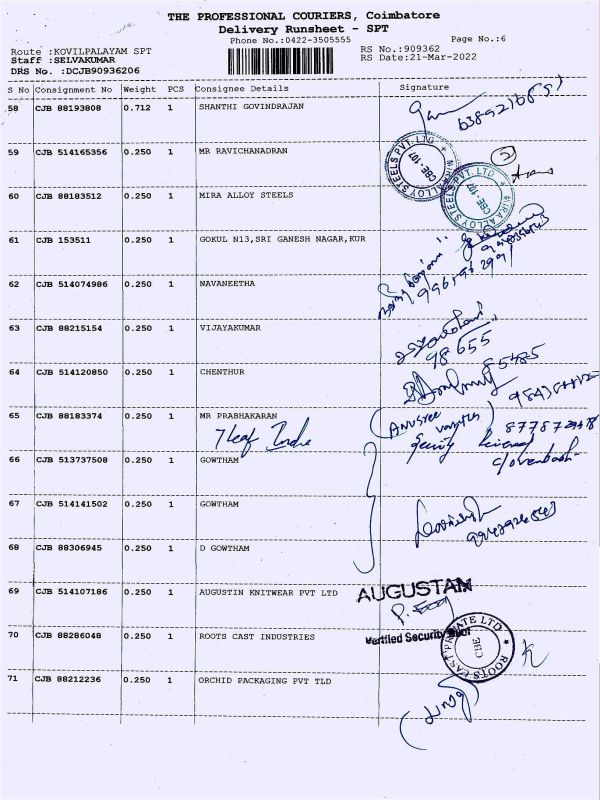 THE PROFESSIONAL COURIERS, Coimbatore
Delivery Runsheet - SPT
Phone No.:0422-3505555
Page No.:6
Route :KOVILPALAYAM SPT
RS No.:909362
Staff :SELVAKUMAR
RS Date:21-Mar-2022
DRS No. :DCJB90936206
S No Consignment No Weight PCS Consignee Details Signature
58 CJB 88193808 0.712 1 SHANTHI GOVINDRAJAN
59 CJB 514165356 0.250 1 MR RAVICHANADRAN
MIRA ALLOY STEELS PVT. LTD
CBE-107
2
60 CJB 88183512 0.250 1 MIRA ALLOY STEELS
MIRA ALLOY STEELS PVT. LTD
CBE-107
61 CJB 153511 0.250 1 GOKUL N13,SRI GANESH NAGAR,KUR
62 CJB 514074986 0.250 1 NAVANEETHA
63 CJB 88215154 0.250 1 VIJAYAKUMAR
98655
85485
64 CJB 514120850 0.250 1 CHENTHUR
65 CJB 88183374 0.250 1 MR PRABHAKARAN
7 Leaf India
66 CJB 513737508 0.250 1 GOWTHAM
67 CJB 514141502 0.250 1 GOWTHAM
68 CJB 88306945 0.250 1 D GOWTHAM
69 CJB 514107186 0.250 1 AUGUSTIN KNITWEAR PVT LTD
AUGUSTAN
Verified Security
70 CJB 88286048 0.250 1 ROOTS CAST INDUSTRIES
ROOTS CAST PRIVATE LTD
CBE
71 CJB 88212236 0.250 1 ORCHID PACKAGING PVT TLD